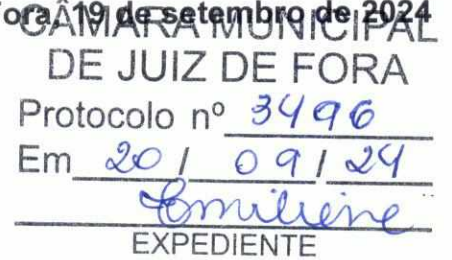 ora, 19 de setembro de 2024
CÂMARA MUNICIPAL
DE JUIZ DE FORA
Protocolo nº 3496
Em 20 / 09 / 24
Emiliene
EXPEDIENTE